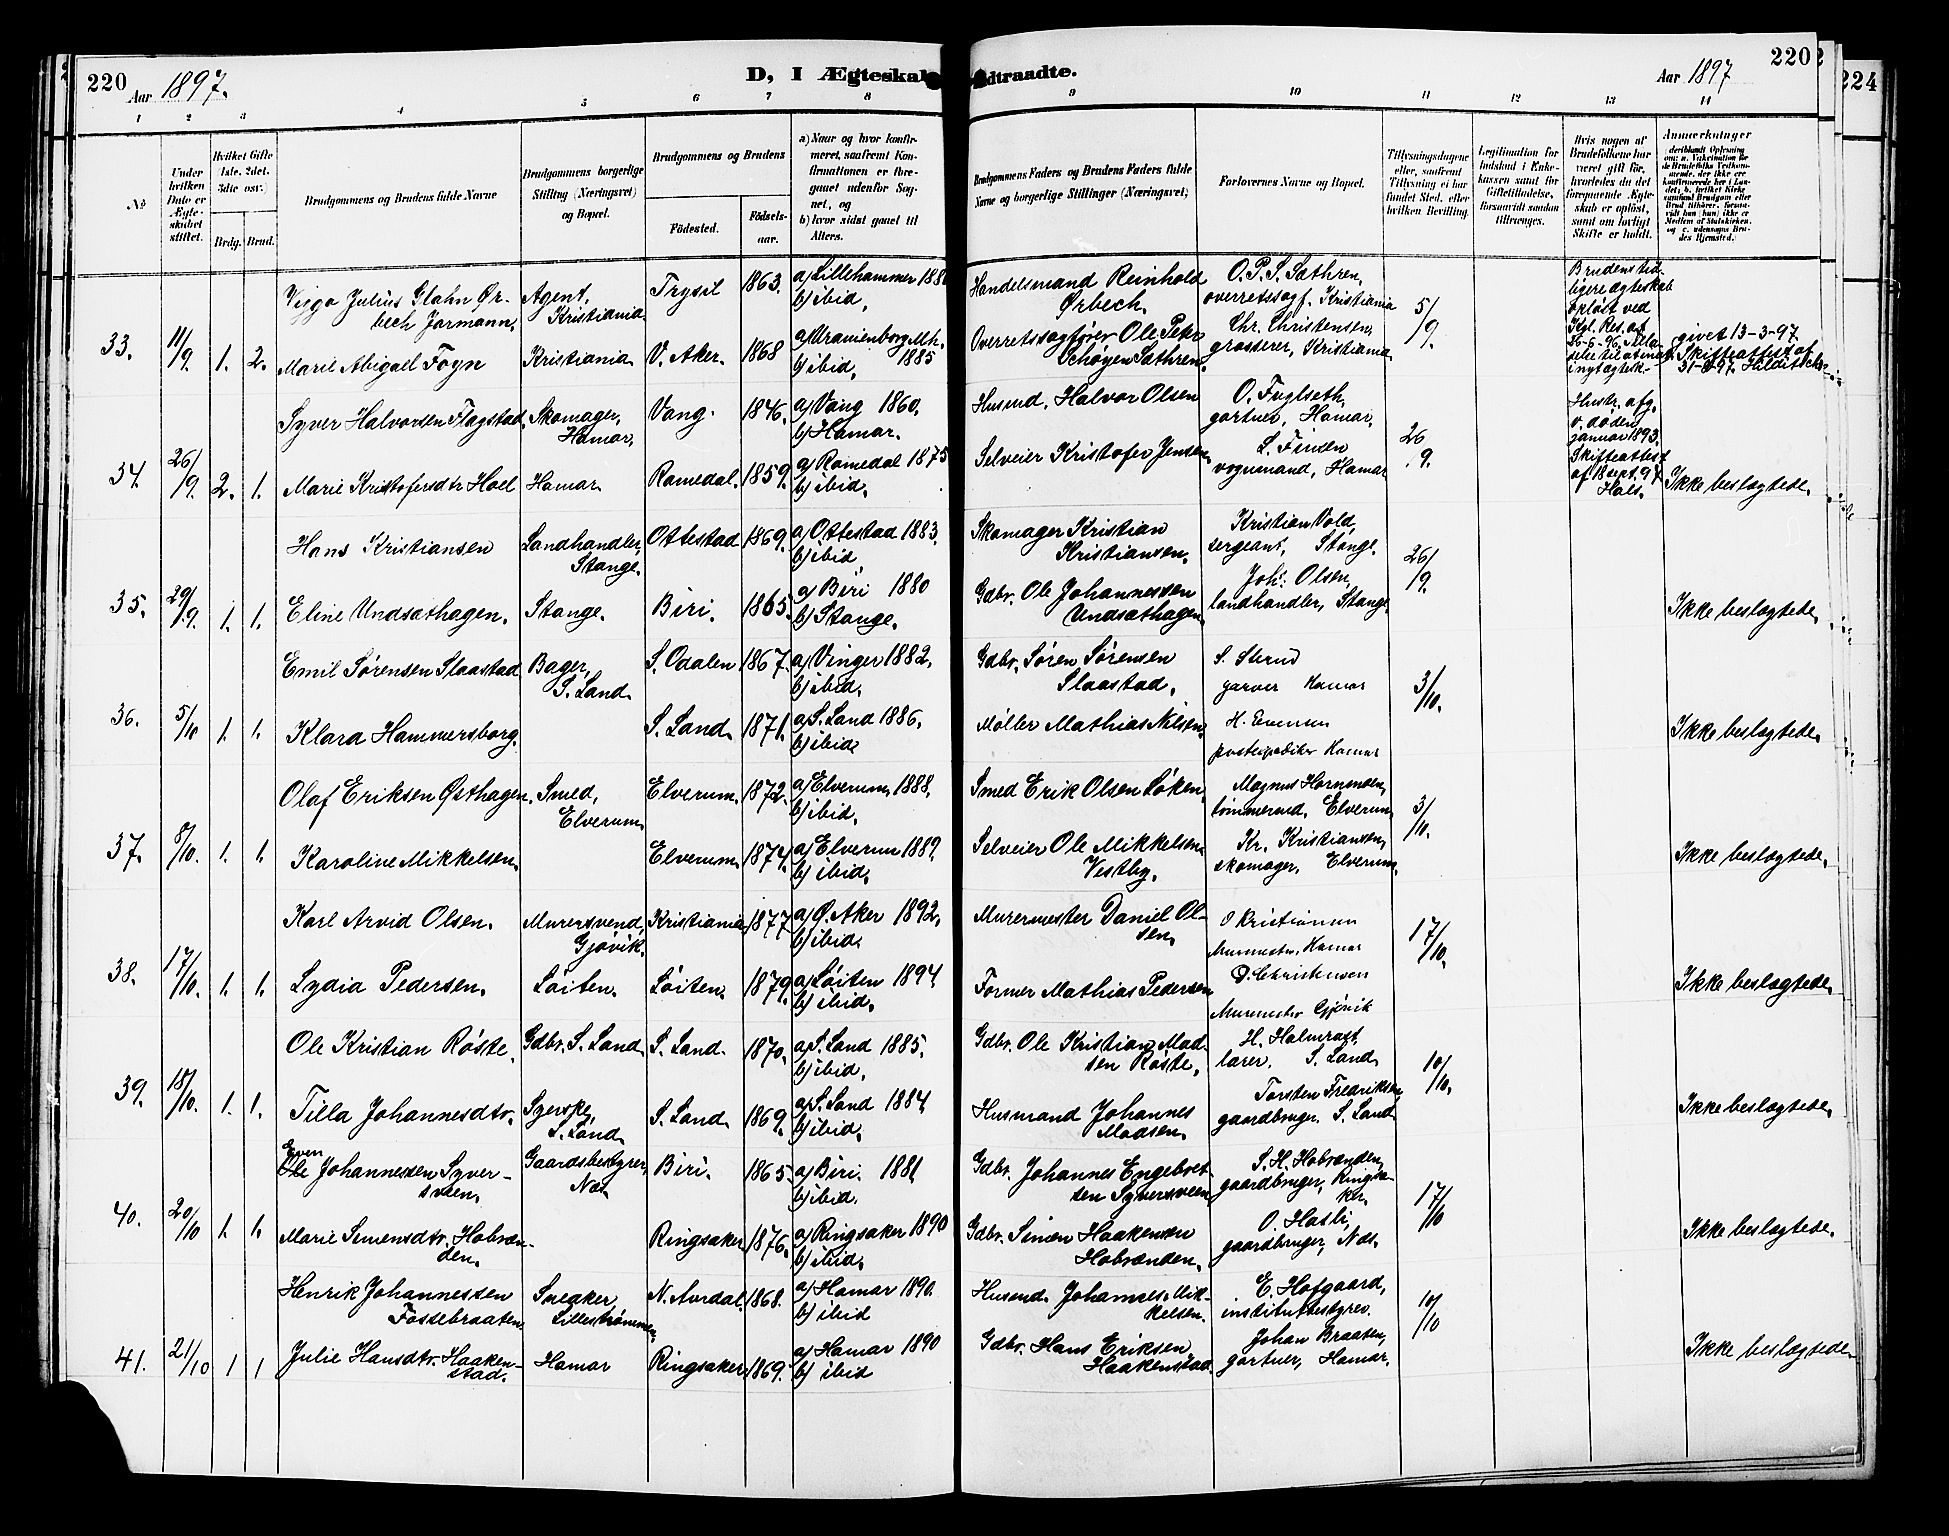 220 Aar 1897. D, I Ægteskab Indtraadte. Aar 1897 220
1 2 3 4 5 6 7 8 9 10 11 12 13 14
No
Under hvilken Dato er Ægteskabet stiftet.
Hvilket Gifte 1ste, 2det, 3die osv.)
Brdg. Brud.
Brudgommens og Brudens fulde Navne
Brudgommens borgerlige Stilling (Næringsvei) og Bopæl.
Brudgommens og Brudens
Fødested. Fødselsaar.
a) Naar og hvor konfirmeret, saafremt Konfirmationen er foregaaet udenfor Sognet, og
b) hvor sidst gaaet til Alters.
Brudgommens Faders og Brudens Faders fulde Navne og borgerlige Stillinger (Næringsvei)
Forlovernes Navne og Bopæl.
Tillysningsdagene eller, saafremt Tillysning ei har fundet Sted, efter hvilken Bevilling.
Legitimation for Indskud i Enkekassen samt for Giftetilladelse, forsaavidt saadan tiltrænges.
Hvis nogen af Brudefolkene har været gift før, hvorledes da det foregaaende Ægteskab er opløst, samt om lovligt Skifte er holdt.
Anmærkninger
33. 11/9 1. 2.
Viggo Julius Glahn Ørbech Jormann, Agent, Kristiania. Trysil 1863. a) Lillehammer 188 b) ibid,
Handelsmand Reinhold Ørbech. O. P. S. Sæthren, overretssagf. Kristiania 5/9.
Marie Abigael Foyn Kristiania. V. Aker. 1868 a) Uranienborg Mh. 1885 b) ibid,
Overretssagfører Ole Peter Schøyen Sæthren. Chr. Christensen, grosserer, Kristiania
Brudens tidligere ægteskab opløst ved Kgl. Res. af 26-6-96,
givet 13-3-97. Skifteattest af
34. 26/9 2. 1.
Syver Halvorsen Flagstad, Skomager, Hamar, Vang. 1846. a) Vang 1860, b) Hamar.
Husmd. Halvor Olsen O. Fuglseth, gartner, Hamar, 26/9.
Marie Kristofersdtr Hoel Hamar Romedal. 1859. a) Romedal 1875 b) ibid,
Selveier Kristofer Jensen, L. Finsen vognmand, Hamar
Hustr. afg. v. døden januar 1893. Skifteattest af 18 sept. 97. Hals.
Ikke beslægtede.
35. 29/9. 1. 1.
Hans Kristiansen Landhandler, Stange. Ottestad 1869. a) Ottestad 1883. b) ibid,
Skomager Kristian Kristiansen. Kristian Vold, sergeant, Stange. 26/9.
Eline Undsæthagen. Stange. Biri. 1865. a) Biri 1880 b) Stange.
Gdbr. Ole Johannessen Undsæthagen Joh: Olsen, landhandler, Stange
Ikke beslægtede.
36. 5/10 1. 1.
Emil Sørensen Slaastad Bager, S. Land. S. Odalen 1867. a) Vinger 1882, b) ibid.
Gdbr. Søren Sørensen Slaastad, S. Sterud garver Hamar 3/10.
Klara Hammersborg. S. Land. 1871. a) S. Land 1886, b) ibid.
Møller Mathias Nilsen. H. Evensen postexpeditør Hamar
Ikke beslægtede.
37. 8/10. 1. 1.
Olaf Eriksen Østhagen, Smed, Elverum. Elverum. 1872. a) Elverum, 1888, b) ibid,
Smed Erik Olsen Løken, Magnus Hornmoen, tømmermd, Elverum, 3/10.
Karoline Mikkelsen. Elverum. 1874. a) Elverum 1889. b) ibid,
Selveier Ole Mikkelsen Vestby. Kr. Kristiansen, skomager, Elverum.
Ikke beslægtede.
38. 17/10. 1. 1.
Karl Arvid Olsen. Murersvend, Gjøvik. Kristiania 1877 a) Ø. Aker 1892, b) ibid.
Murermester Daniel Olsen, O Kristiansen Murmester, Hamar 17/10.
Lydia Pedersen. Løiten. Løiten. 1879. a) Løiten 1894, b) ibid,
Former Mathias Pedersen D. Christensen Murmester Gjøvik
Ikke beslægtede.
39. 18/10. 1. 1.
Ole Kristian Røste, Gdbr. S. Land, S. Land. 1870. a) S. Land 1885, b) ibid,
Gdbr. Ole Kristian Madsen Røste, H. Halmrast, lærer. S. Land, 10/10.
Tilla Johannesdtr. Syerske, S. Land. S. Land. 1869. a) S. Land 1884 b) ibid,
Husmand Johannes Madsen. Torsten Fredriksen, gaardbruger. S. Land
Ikke beslægtede.
40. 20/10 1. 1.
Even
Ole Johannessen Syversveen, Gaardsbestyrer, Næs. Biri. 1865. a) Biri. 1881 b) ibid.
Gdbr. Johannes Engebretsen Syversveen S. H. Hobrænden, gaardbruger, Ringsaker. 17/10
Marie Simensdtr. Hobrænden, Ringsaker 1876. a) Ringsaker 1890 b) ibid.
Gdbr. Simen Haakensen Hobrænden. O. Hatli, gaardbruger, Næs.
Ikke beslægtede.
41. 21/10 1 1
Henrik Johannessen Fossebraaten, Snedker, Lillestrømmen. N. Aurdal. 1868. a) Hamar 1890. b) ibid
Husmd. Johannes Mikkelsen. E. Hofgaard, institutbestyrer. 10/10
Julie Hansdtr. Haakenstad. Hamar Ringsaker 1869. a) Hamar 1890 b) ibid
Gdbr. Hans Eriksen Haakenstad. Johan Braaten, gartner, Hamar.
Ikke beslægtede.
224